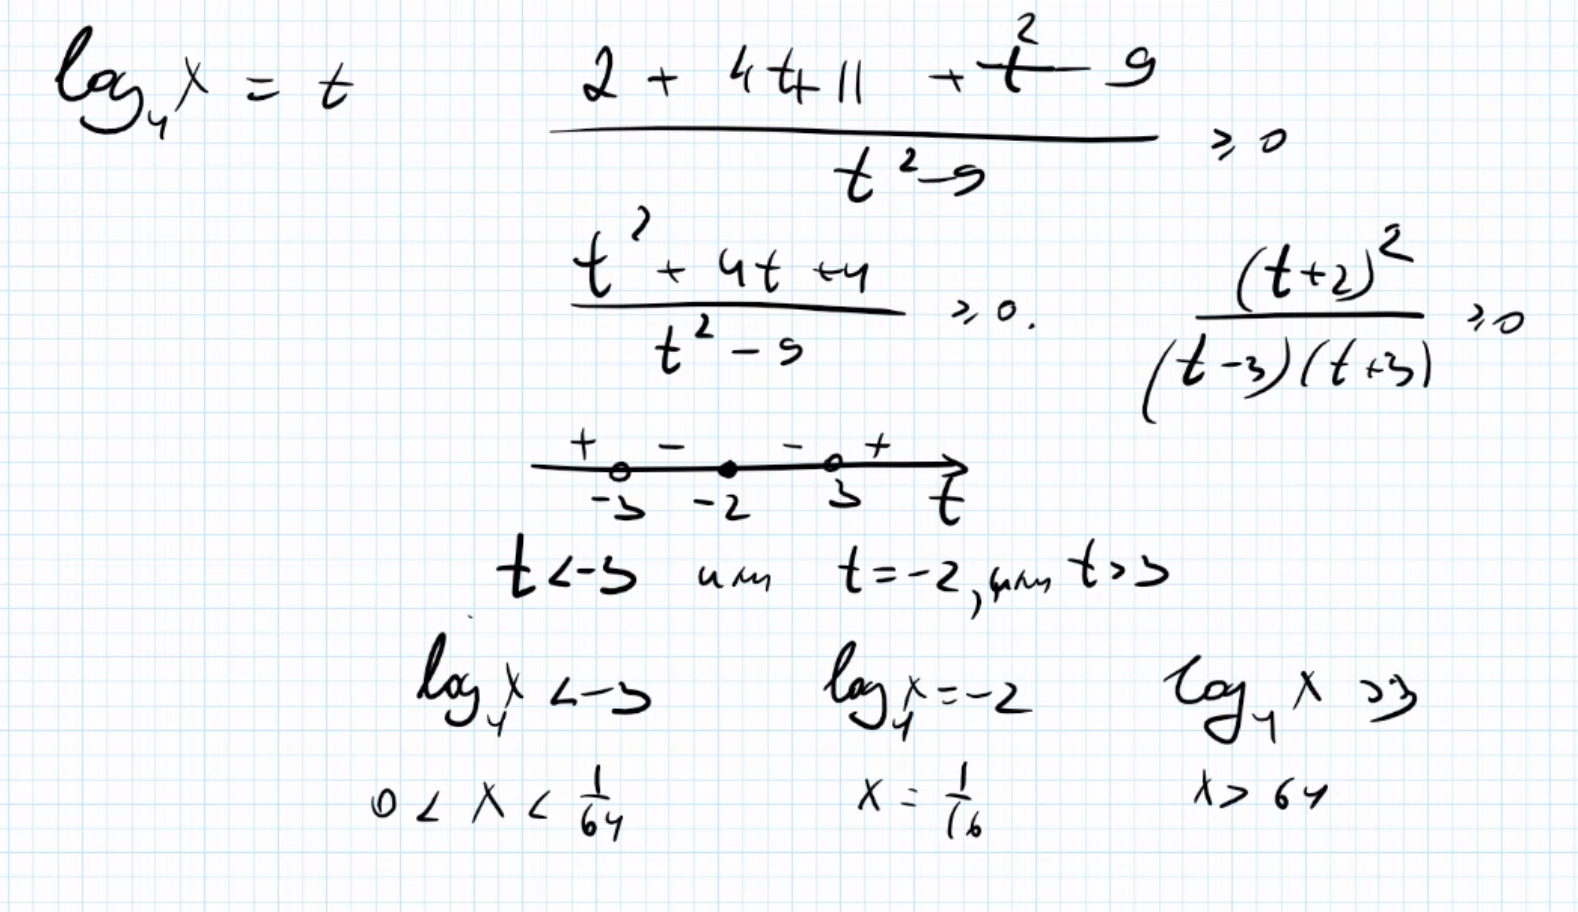 log₄x = t (2 + 4t+11 + t² - 9)/(t² - 9) ≥ 0
(t² + 4t + 4)/(t² - 9) ≥ 0. (t+2)²/((t-3)(t+3)) ≥ 0
+ - - +
-3 -2 3 t
t < -3 или t = -2, или t > 3
log₄x < -3 log₄x = -2 log₄x > 3
0 < x < 1/64 x = 1/16 x > 64